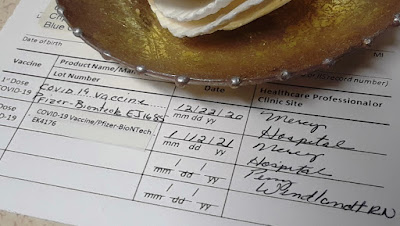 Blue C
MI
Date of birth
record number)
Vaccine
Product Name/Man
Lot Number
Date
Healthcare Professional or
Clinic Site
1st Dose
COVID-19
Covid 19 vaccine
Pfizer-Biontech EJ1685
12/22/20
mm dd yy
Mercy
Hospital
Dose
COVID-19
COVID-19 Vaccine/Pfizer-BioNTech
EK4176
1/12/21
mm dd yy
Mercy
Hospital
/ /
mm dd yy
Penny
Windlandt RN
/ /
mm dd yy